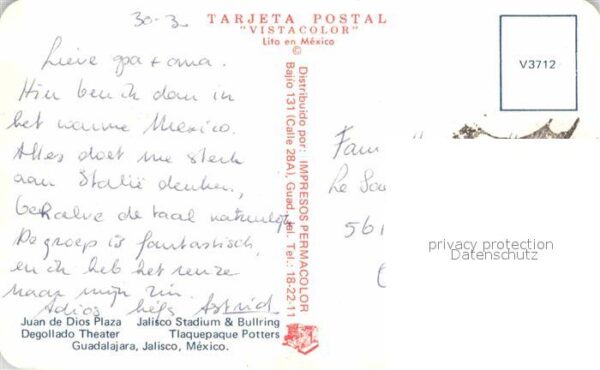 30-3
TARJETA POSTAL
"VISTACOLOR"
Lito en México
©
V3712
Lieve opa + oma.
Hier ben ik dan in
het warme Mexico.
Alles doet me sterk
aan Italië denken,
behalve de taal natuurlijk
De groep is fantastisch,
en ik heb het reuze
naar mijn zin.
Adios liefs Astrid
Distribuido por: IMPRESOS PERMACOLOR
Bajío 131 (Calle 28A), Guad. Jal. Tel.: 18-22-11
Fam
Le
561
privacy protection
Datenschutz
Juan de Dios Plaza Jalisco Stadium & Bullring
Degollado Theater Tlaquepaque Potters
Guadalajara, Jalisco, México.